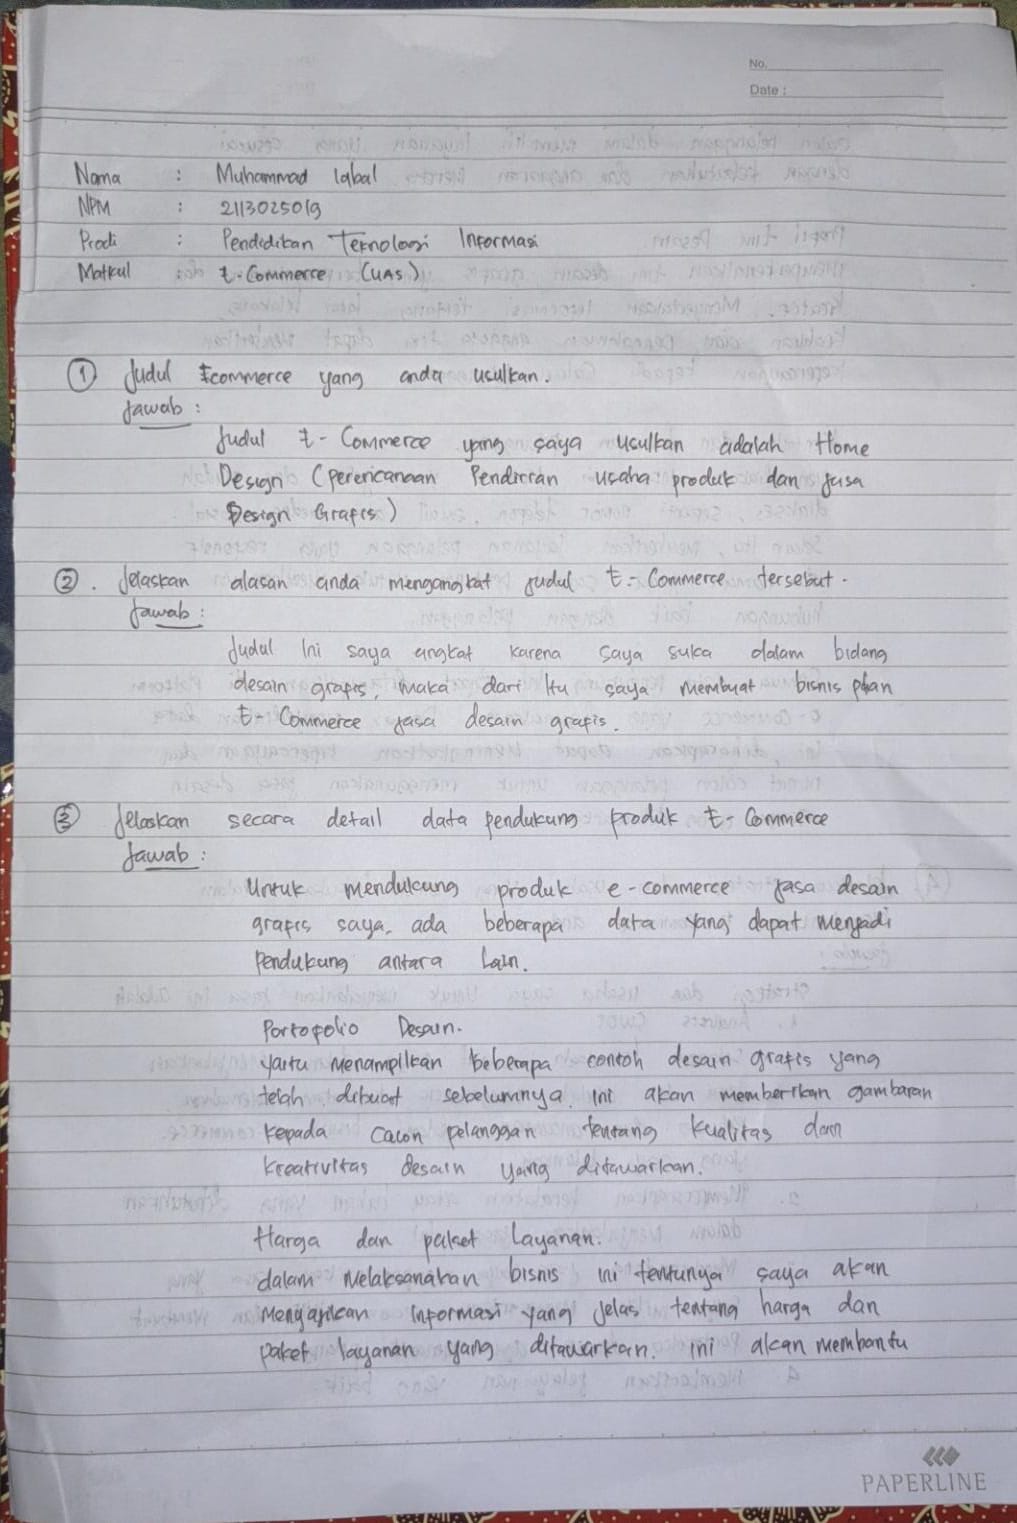 No.
Date :
Nama : Muhammad Iqbal
NPM : 2113025019
Prodi : Pendidikan Teknologi Informasi
Matkul : E-Commerce (UAS)
① Judul Ecommerce yang anda usulkan.
Jawab :
Judul E-Commerce yang saya usulkan adalah Home
Design (perencanaan Pendirian usaha produk dan jasa
Design Grafis)
②. Jelaskan alasan anda mengangkat judul E-Commerce tersebut.
Jawab :
Judul ini saya angkat karena saya suka dalam bidang
desain grafis, maka dari itu saya membuat bisnis plan
E-Commerce jasa desain grafis.
③ Jelaskan secara detail data pendukung produk E-Commerce
Jawab :
Untuk mendukung produk e-commerce jasa desain
grafis saya, ada beberapa data yang dapat menjadi
Pendukung antara Lain.
Portofolio Desain.
yaitu menampilkan beberapa contoh desain grafis yang
telah dibuat sebelumnya. ini akan memberikan gambaran
kepada calon pelanggan tentang kualitas dan
kreativitas desain yang ditawarkan.
Harga dan paket Layanan.
dalam melaksanakan bisnis ini tentunya saya akan
menyajikan informasi yang jelas tentang harga dan
paket layanan yang ditawarkan. ini akan membantu
PAPERLINE